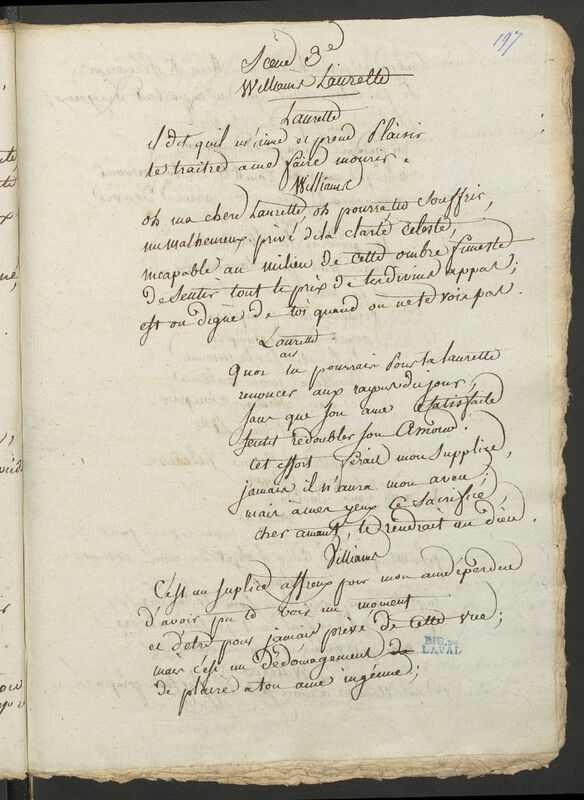 197
Scene 3e
Williams Laurette
Laurette
il dit quil m'aime et prend plaisir
le traitre a me faire mourir.
Williams
oh ma chere Laurette, oh pourrastu souffrir,
un malheureux privé de la clarté celeste,
incapable au milieu de cette ombre funeste
de sentir tout le prix de tes divins appas;
est on digne de toi quand on ne te vois pas.
Laurette.
air
quoi tu pourrais pour ta laurette
renoncer aux rayons du jour,
sans que son ame satisfaite
sentit redoubler son amour.
cet effort serait mon supplice,
jamais il n'aura mon aveu;
mais a mes yeux ce sacrifice,
cher amant, te rendrait un dieu.
Villiams
C'est un suplice affreux pour mon ame éperdue
d'avoir pu te voir un moment
et d'être pour jamais privé de cette vue;
mais c'est un dédomagement
de plaire a ton ame ingénue;
BIB. DE
LAVAL